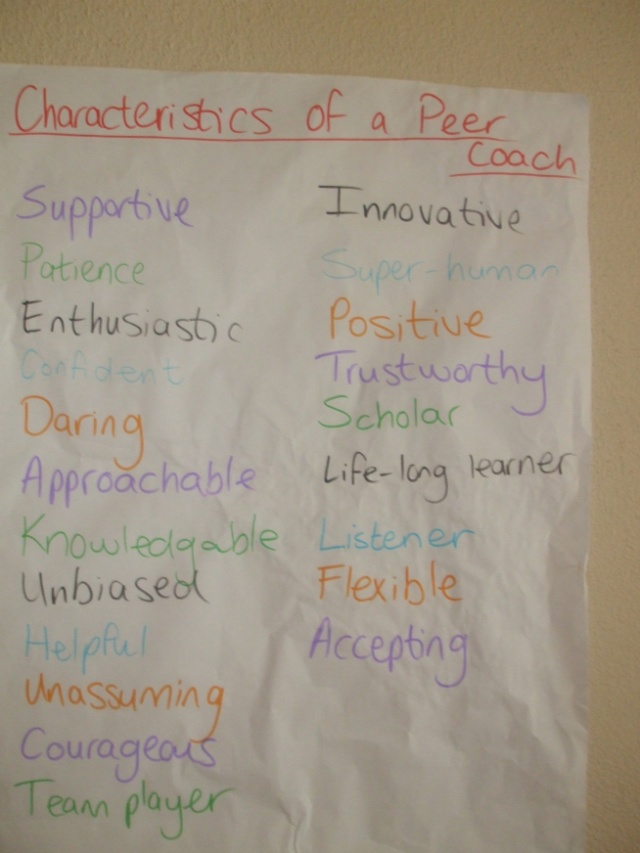 Characteristics of a Peer
Coach
Supportive
Patience
Enthusiastic
Confident
Daring
Approachable
Knowledgable
Unbiased
Helpful
Unassuming
Courageous
Team player
Innovative
Super-human
Positive
Trustworthy
Scholar
Life-long learner
Listener
Flexible
Accepting